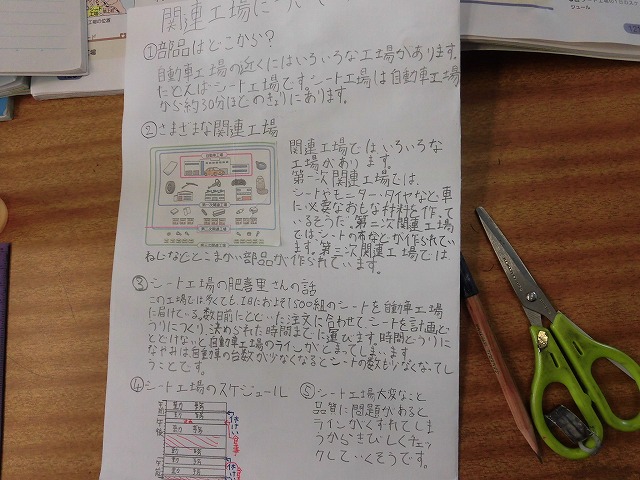 関連工場について
①部品はどこから?
自動車工場の近くにはいろいろな工場があります。
たとえばシート工場です。シート工場は自動車工場
から約30分ほどのきょりにあります。
②さまざまな関連工場
関連工場ではいろいろな
工場があります。
第一次関連工場では、
シートやモニター・タイヤなど、車
に必要なおもな材料を作って
いるそうだ。第二次関連工場
ではシートの布などが作られてい
ます。第三次関連工場では
ねじなどとこまかい部品が作られています。
自動車工場
第一次関連工場
第二次関連工場
第三次関連工場
③シート工場の肥喜里さんの話
この工場では多くても1日におよそ1500組のシートを自動車工場
に届けている。数日前にとどいた注文に合わせてシートを計画ど
うりにつくり、決められた時間までに運びます。時間どうりに
とどけないと自動車工場のラインがとまってしまいます
なやみは自動車の台数が少なくなるとシートの数も少なくなってし
うことです。
④シート工場のスケジュール
午前
勤務
勤務
午後
勤務
勤務
勤務
午前
勤務
休けい
食事
休けい
⑤シート工場大変なこと
品質に問題があると
ラインがくずれてしま
うからきびしくチェッ
クしていくそうです。